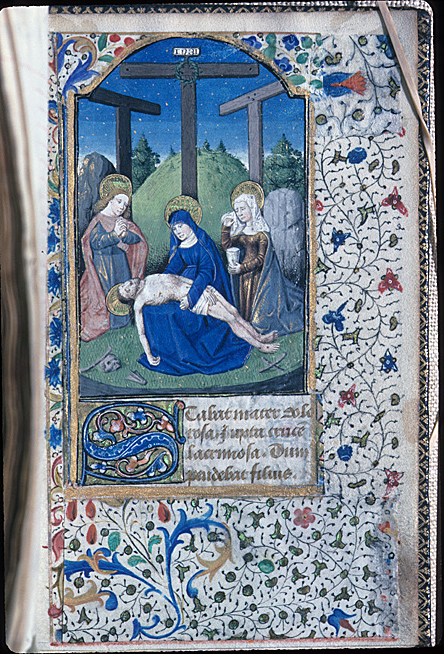 INRI
Stabat mater dolo
rosa iuxta cruce
lacrimosa. Dum
pendebat filius.